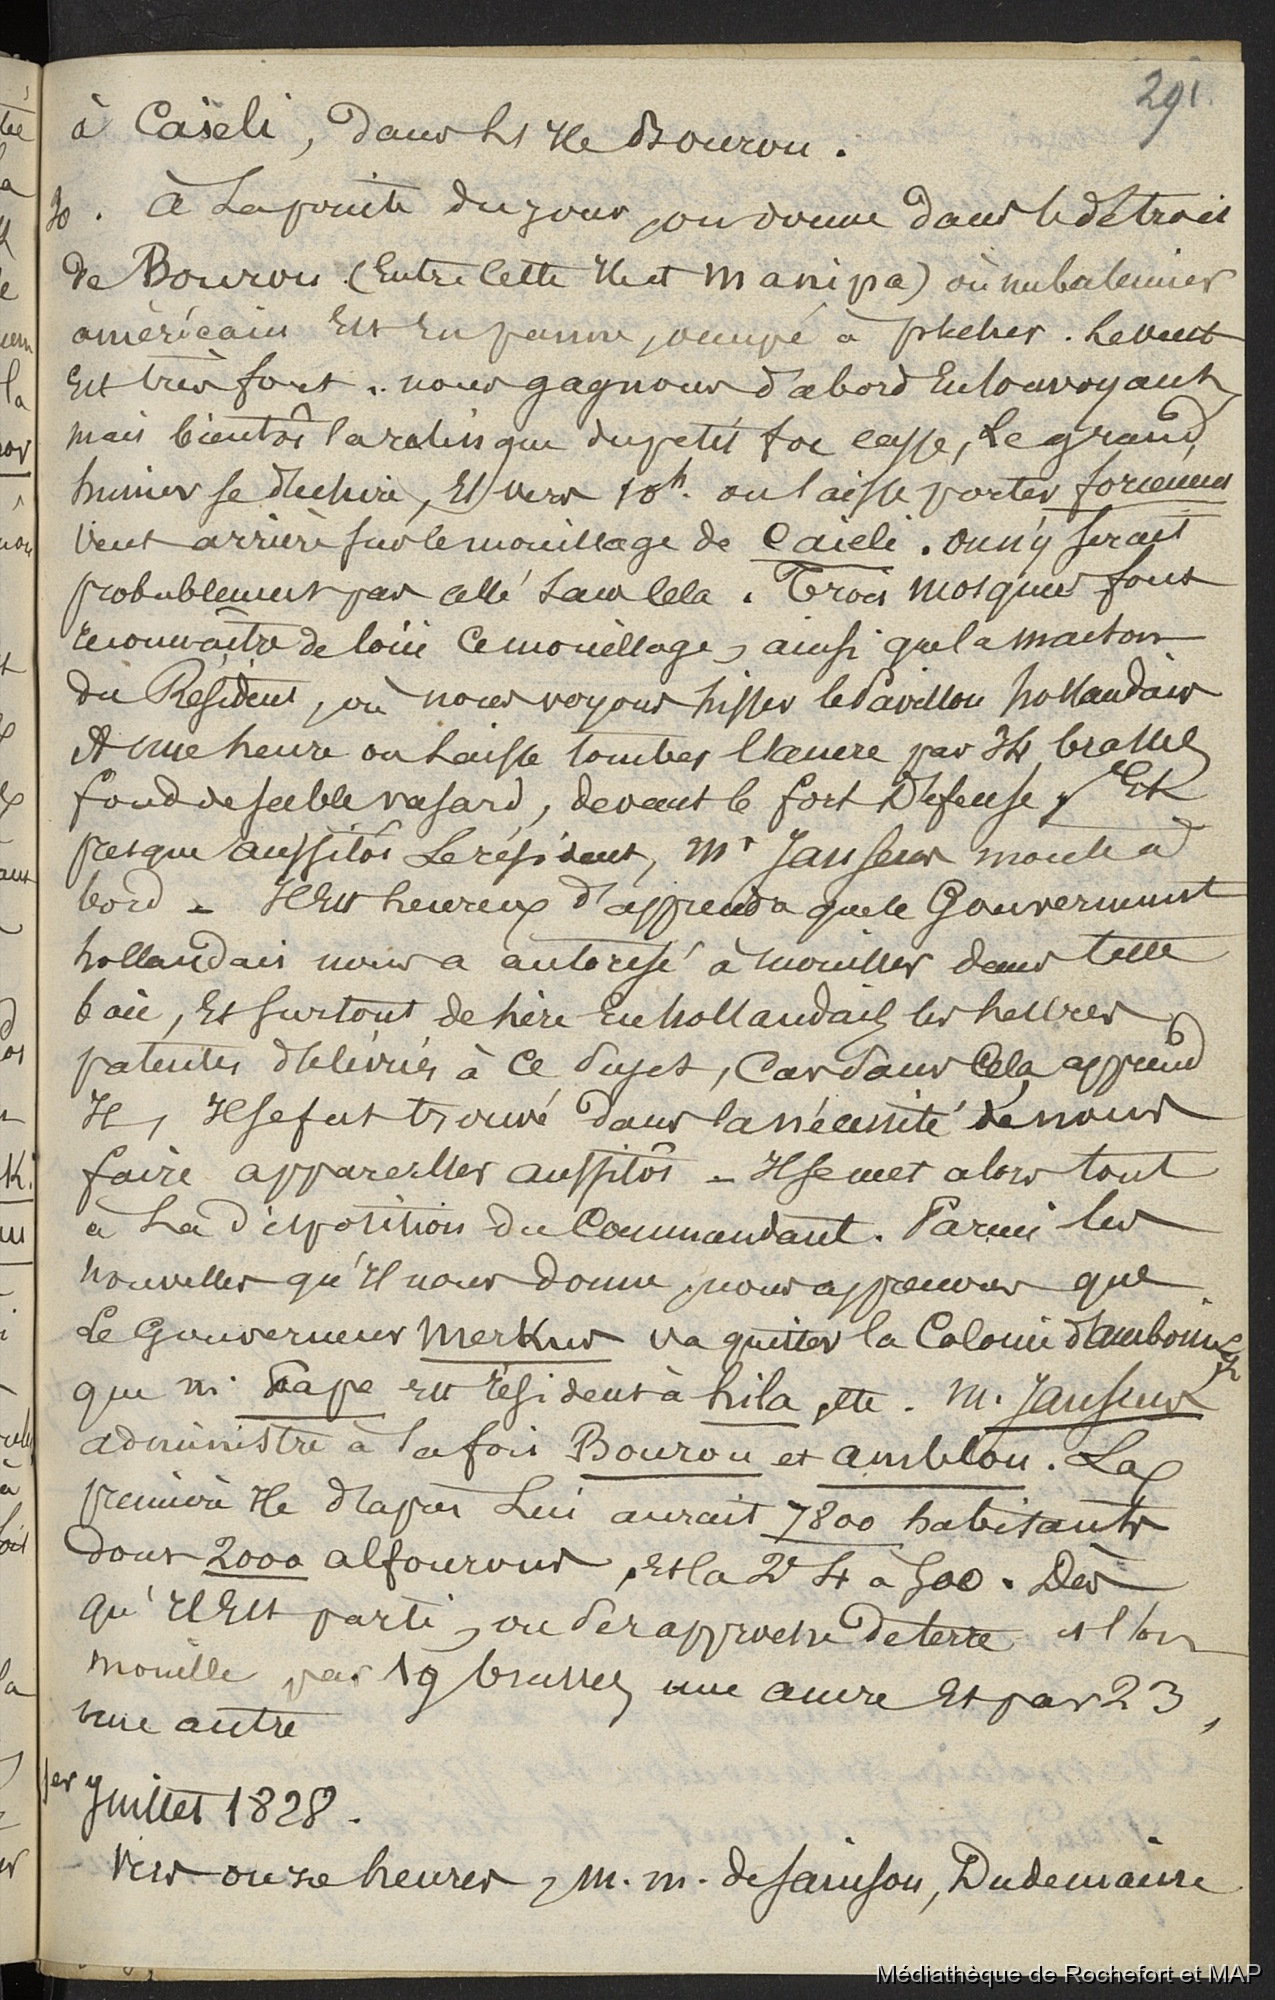 291.
à Caïeli, dans l'Ile Bourou.
30. à La pointe du jour, on donne dans le détroit
de Bourou (Entre Cette Ile et Manipa) où un baleinier
américain Est En panne, occupé à pêcher. Le vent
Est très fort. nous gagnons d'abord En louvoyant,
mais bientôt la ralingue du petit foc casse, Le grand
hunier se déchire, Et vers 10h. on laisse porter forcement
Vent arrière sur le mouillage de Caïeli. On n'y serait
probablement pas allé sans Cela. Trois mosquées font
reconnaître de loin Ce mouillage, ainsi que la maison
du Résident, où nous voyons hisser le Pavillon hollandais
A une heure on Laisse tomber l'ancre par 34 brasses
fond de sable vasard, devant le fort Défense, Et
presque aussitôt Le résident, Mr Jansens monte à
bord - Il Est heureux d'apprendre que le Gouvernement
hollandais nous a autorisé à mouiller dans cette
baie, Et surtout de lire En hollandais les lettres
patentes délivrées à Ce Sujet, Car Sans Cela, apprend
Il, Il se fut trouvé Dans la nécessité de nous
faire appareiller aussitôt - Il se met alors tout
à La disposition du Commandant. Parmi les
nouvelles qu'Il nous donne, nous apprenons que
Le Gouverneur Merkus va quitter la Colonie d'amboine, Et
que M. Pape Est résident à hila, etc. M. Jansens
administre à la fois Bourou et amblou. La
première Ile d'après Lui aurait 7800 habitants
dont 2000 alfourous, Et la 2e 4 à 500. Dès
qu'Il Est parti, on Se rapproche de terre et l'on
mouille par 19 brasses une ancre Et par 23,
une autre
1er Juillet 1828.
Vers onze heures, M. M. de Sainson, Dudemaine
Médiathèque de Rochefort et MAP